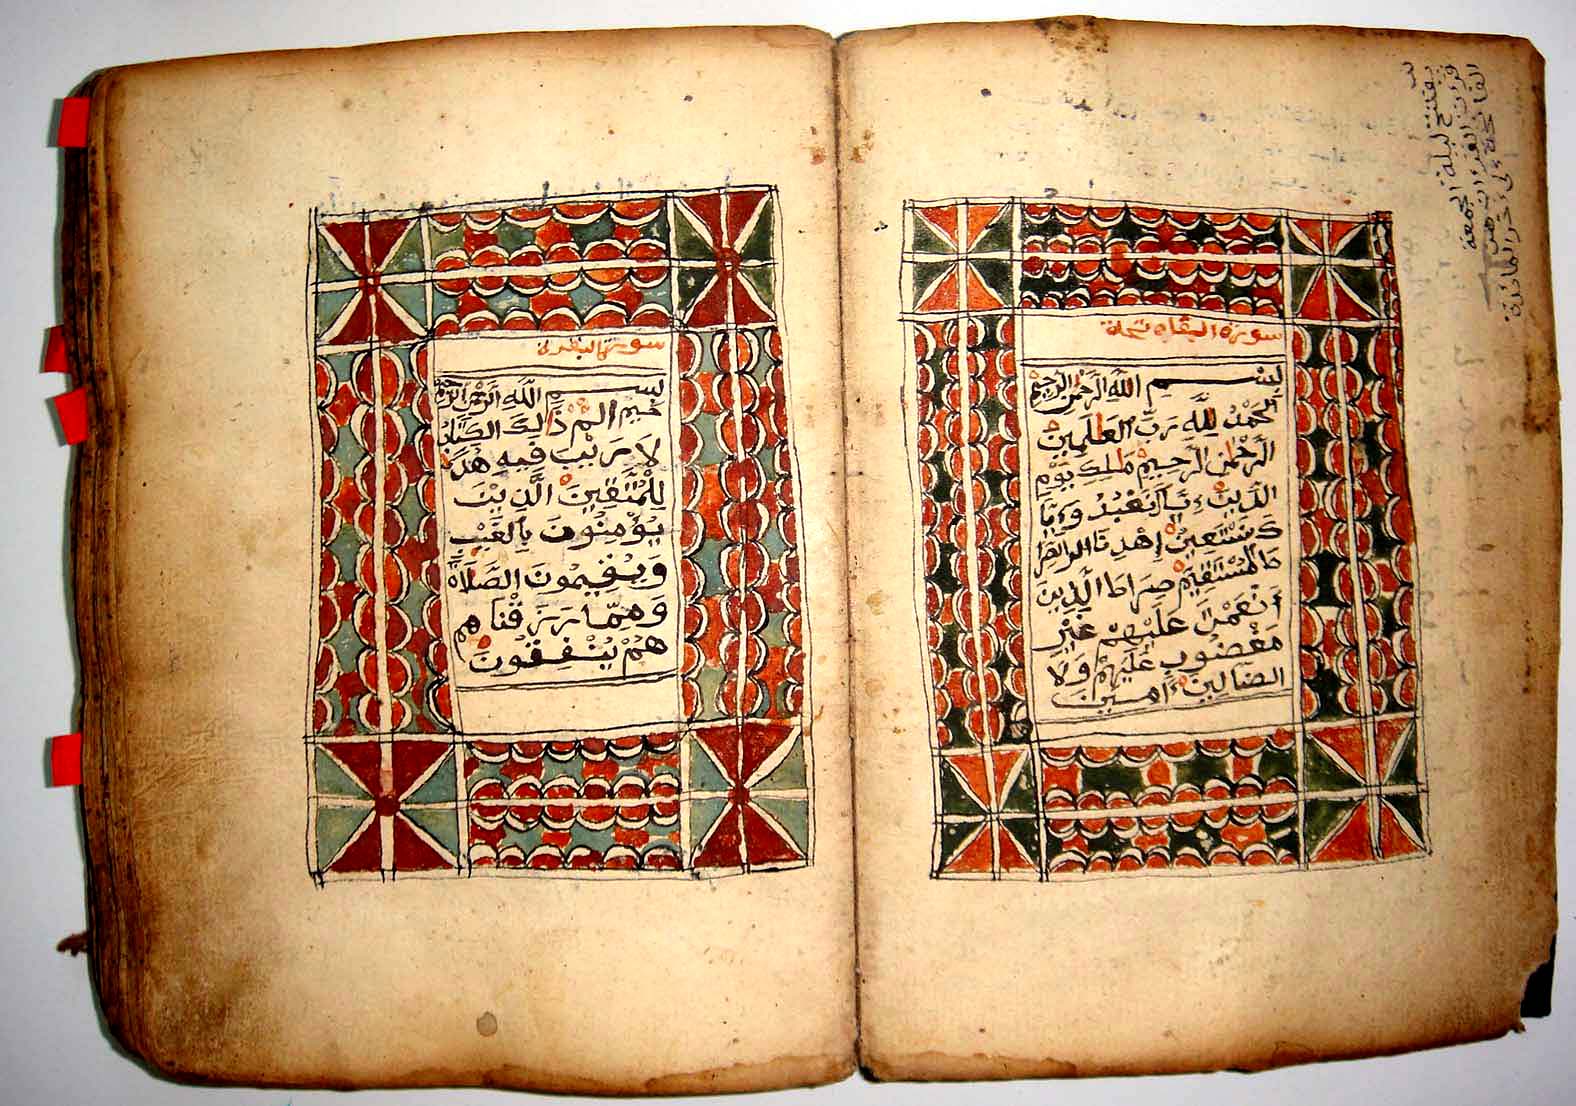 يفتتح ليلة الجمعة
الفاتحة إلى ءاخر المائدة
سورة الفا تحة
بِسْــمِ اللَّهِ الرَّحْمَنِ الرَّحِيمِ
الْحَمْدُ لِلَّهِ رَبِّ الْعَالَمِينَ
الرَّحْمَنِ الرَّحِيمِ مَالِكِ يَوْمِ
الدِّينِ إِيَّاكَ نَعْبُدُ وَإِيَّا
كَ نَسْتَعِينُ اِهْدِنَا الصِّرَا
طَ الْمُسْتَقِيمَ صِرَاطَ الَّذِينَ
أَنْعَمْتَ عَلَيْهِمْ غَيْرِ
مَغْضُوبِ عَلَيْهِمْ وَلَا
الضَّالِّينَ ءَامــين
سورة البقرة
بِسْــمِ اللَّهِ الرَّحْمَنِ الرَّ
حِيمِ الم ذَالِكَ الْكِتَابُ
لَا رَيْبَ فِيهِ هُدًى
لِلْمُتَّقِينَ الَّذِينَ
يُؤْمِنُونَ بِالْغَيْبِ
وَيُقِيمُونَ الصَّلَاةَ
وَمِمَّا رَزَقْنَاهُمْ
هُمْ يُنْفِقُونَ